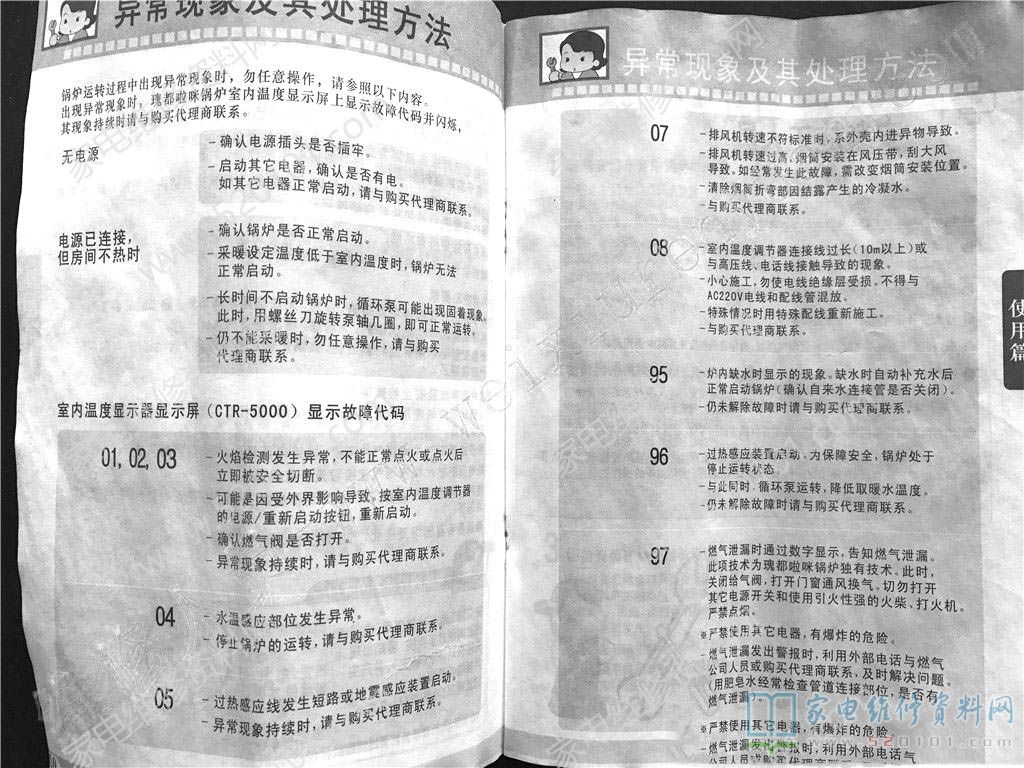 异常现象及其处理方法
锅炉运转过程中出现异常现象时，勿任意操作，请参照以下内容。
出现异常现象时，瑰都啦咪锅炉室内温度显示屏上显示故障代码并闪烁，
其现象持续时请与购买代理商联系。
无电源
- 确认电源插头是否插牢。
- 启动其它电器，确认是否有电。
如其它电器正常启动，请与购买代理商联系。
电源已连接，
但房间不热时
- 确认锅炉是否正常启动。
- 采暖设定温度低于室内温度时，锅炉无法
正常启动。
- 长时间不启动锅炉时，循环泵可能出现固着现象。
此时，用螺丝刀旋转泵轴几圈，即可正常运转。
- 仍不能采暖时，勿任意操作，请与购买
代理商联系。
室内温度显示器显示屏（CTR-5000）显示故障代码
01, 02, 03
- 火焰检测发生异常，不能正常点火或点火后
立即被安全切断。
- 可能是因受外界影响导致。按室内温度调节器
的电源/重新启动按钮，重新启动。
- 确认燃气阀是否打开。
- 异常现象持续时，请与购买代理商联系。
04
- 水温感应部位发生异常。
- 停止锅炉的运转，请与购买代理商联系。
05
- 过热感应线发生短路或地震感应装置启动。
- 异常现象持续时，请与购买代理商联系。
异常现象及其处理方法
07
- 排风机转速不符标准时，系外壳内进异物导致。
- 排风机转速过高，烟筒安装在风压带，刮大风
导致。如经常发生此故障，需改变烟筒安装位置。
- 清除烟筒折弯部因结露产生的冷凝水。
- 与购买代理商联系。
08
- 室内温度调节器连接线过长（10m以上）或
与高压线、电话线接触导致的现象。
- 小心施工，勿使电线绝缘层受损。不得与
AC220V电线和配线管混放。
- 特殊情况时用特殊配线重新施工。
- 与购买代理商联系。
95
- 炉内缺水时显示的现象。缺水时自动补充水后
正常启动锅炉（确认自来水连接管是否关闭）。
- 仍未解除故障时请与购买代理商联系。
96
- 过热感应装置启动。为保障安全，锅炉处于
停止运转状态。
- 与此同时，循环泵运转，降低取暖水温度。
- 仍未解除故障时请与购买代理商联系。
97
- 燃气泄漏时通过数字显示，告知燃气泄漏。
此项技术为瑰都啦咪锅炉独有技术。此时，
关闭给气阀，打开门窗通风换气。切勿打开
其它电源开关和使用引火性强的火柴、打火机。
严禁点烟。
※严禁使用其它电器，有爆炸的危险。
- 燃气泄漏发出警报时，利用外部电话与燃气
公司人员或购买代理商联系，及时解决问题。
（用肥皂水经常检查管道连接部位，是否有
燃气泄漏）
※严禁使用其它电器，有爆炸的危险
- 燃气泄漏发出警报时，利用外部电话气
使用篇
家电维修资料网
www.520101.com